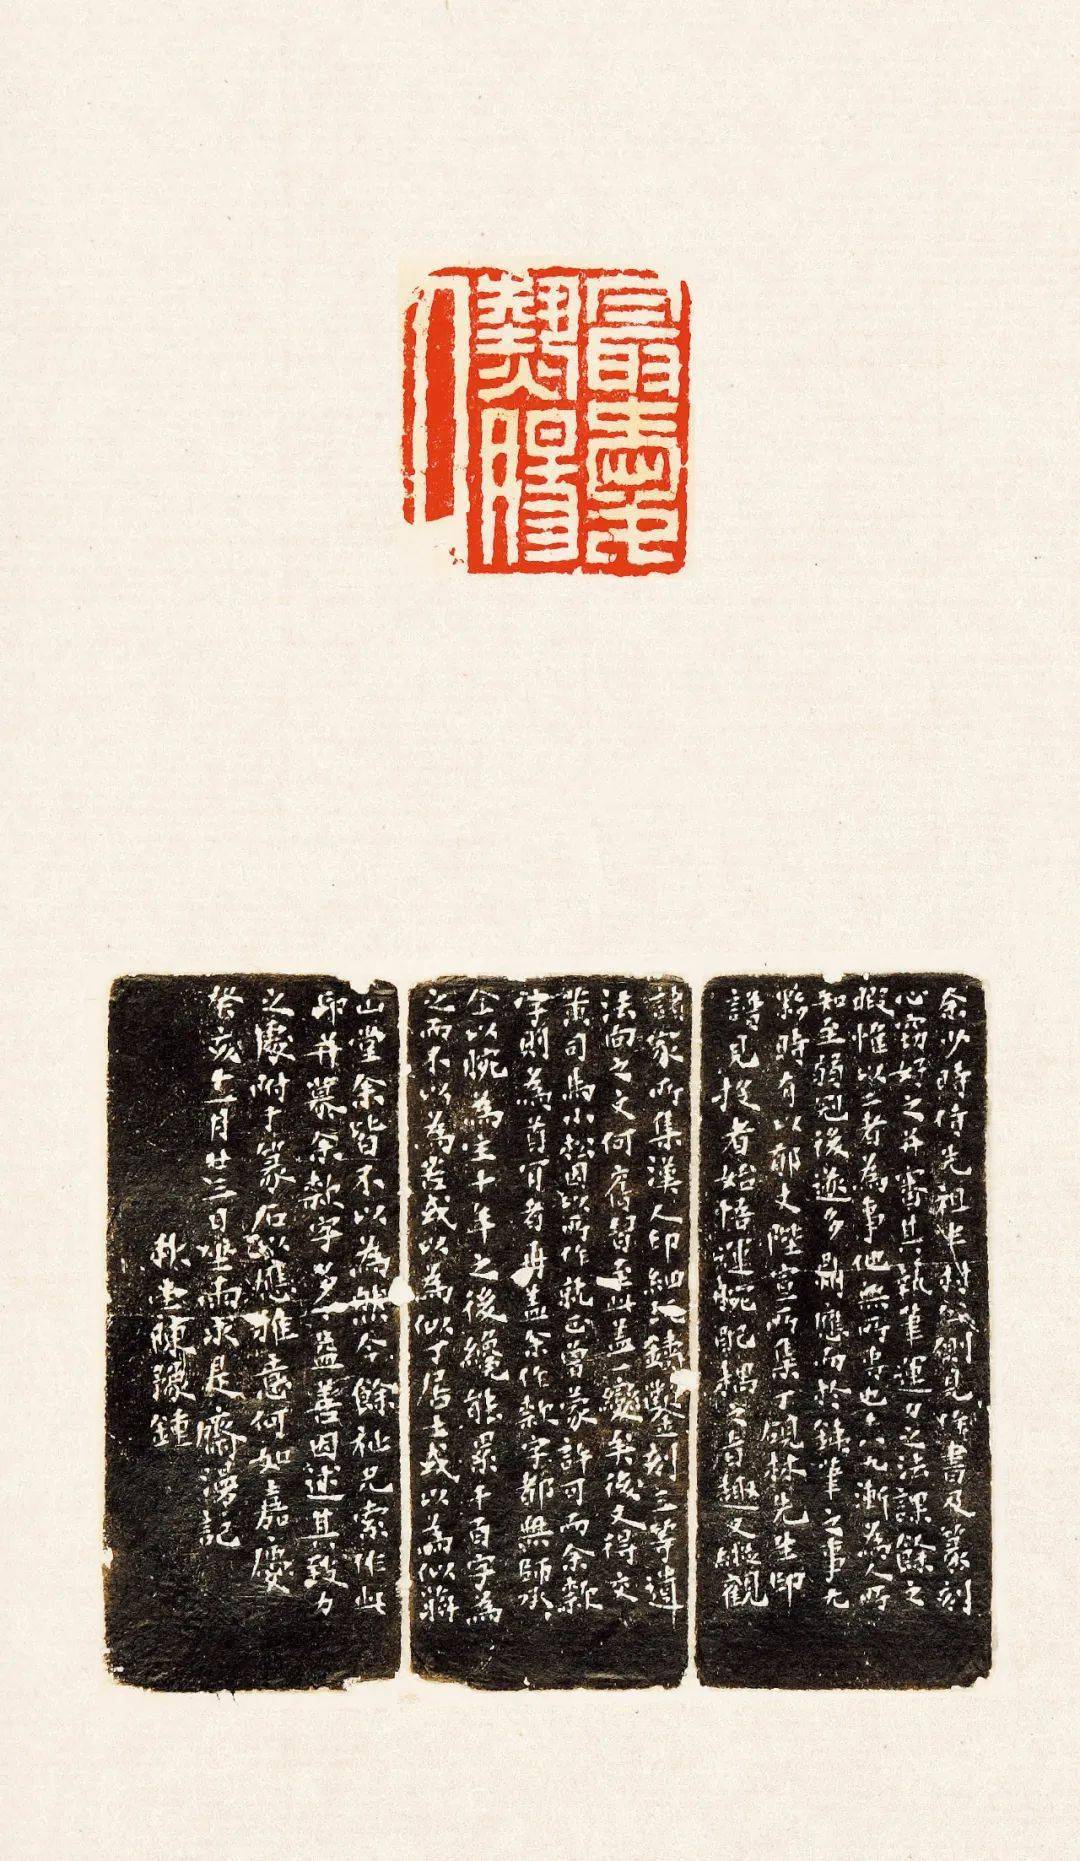 最㤅
熱腸
人
余少時侍先祖半村公側見作書及篆刻
心窃好之并審其執筆運刀之法課餘之
暇惟以二者為事他無所專也十八九漸為人所
知至弱冠後遂多酬應而於鉄筆之事尤
夥時有以郁丈陛宣所集丁硯林先生印
譜見投者始悟運腕配搆之旨趣又縱觀
諸家所集漢人印細究鑄鑿刻三等遺
法向之文何舊習至此盖一變矣後又得交
黄司馬小松因以所作就正曾蒙許可而余欵
字則為首肯者再盖余作欵字都無師承
全以腕為主十年之後纔能累千百字為
之而不以為苦或以為似丁居士或以為似蔣
山堂余皆不以為然今餘祉兄索作此
印并冀余欵字多益善因述其致力
之處附于篆石以應雅意何如嘉慶
癸亥六月廿三日坐雨求是齋漫記
秋堂陳豫鍾